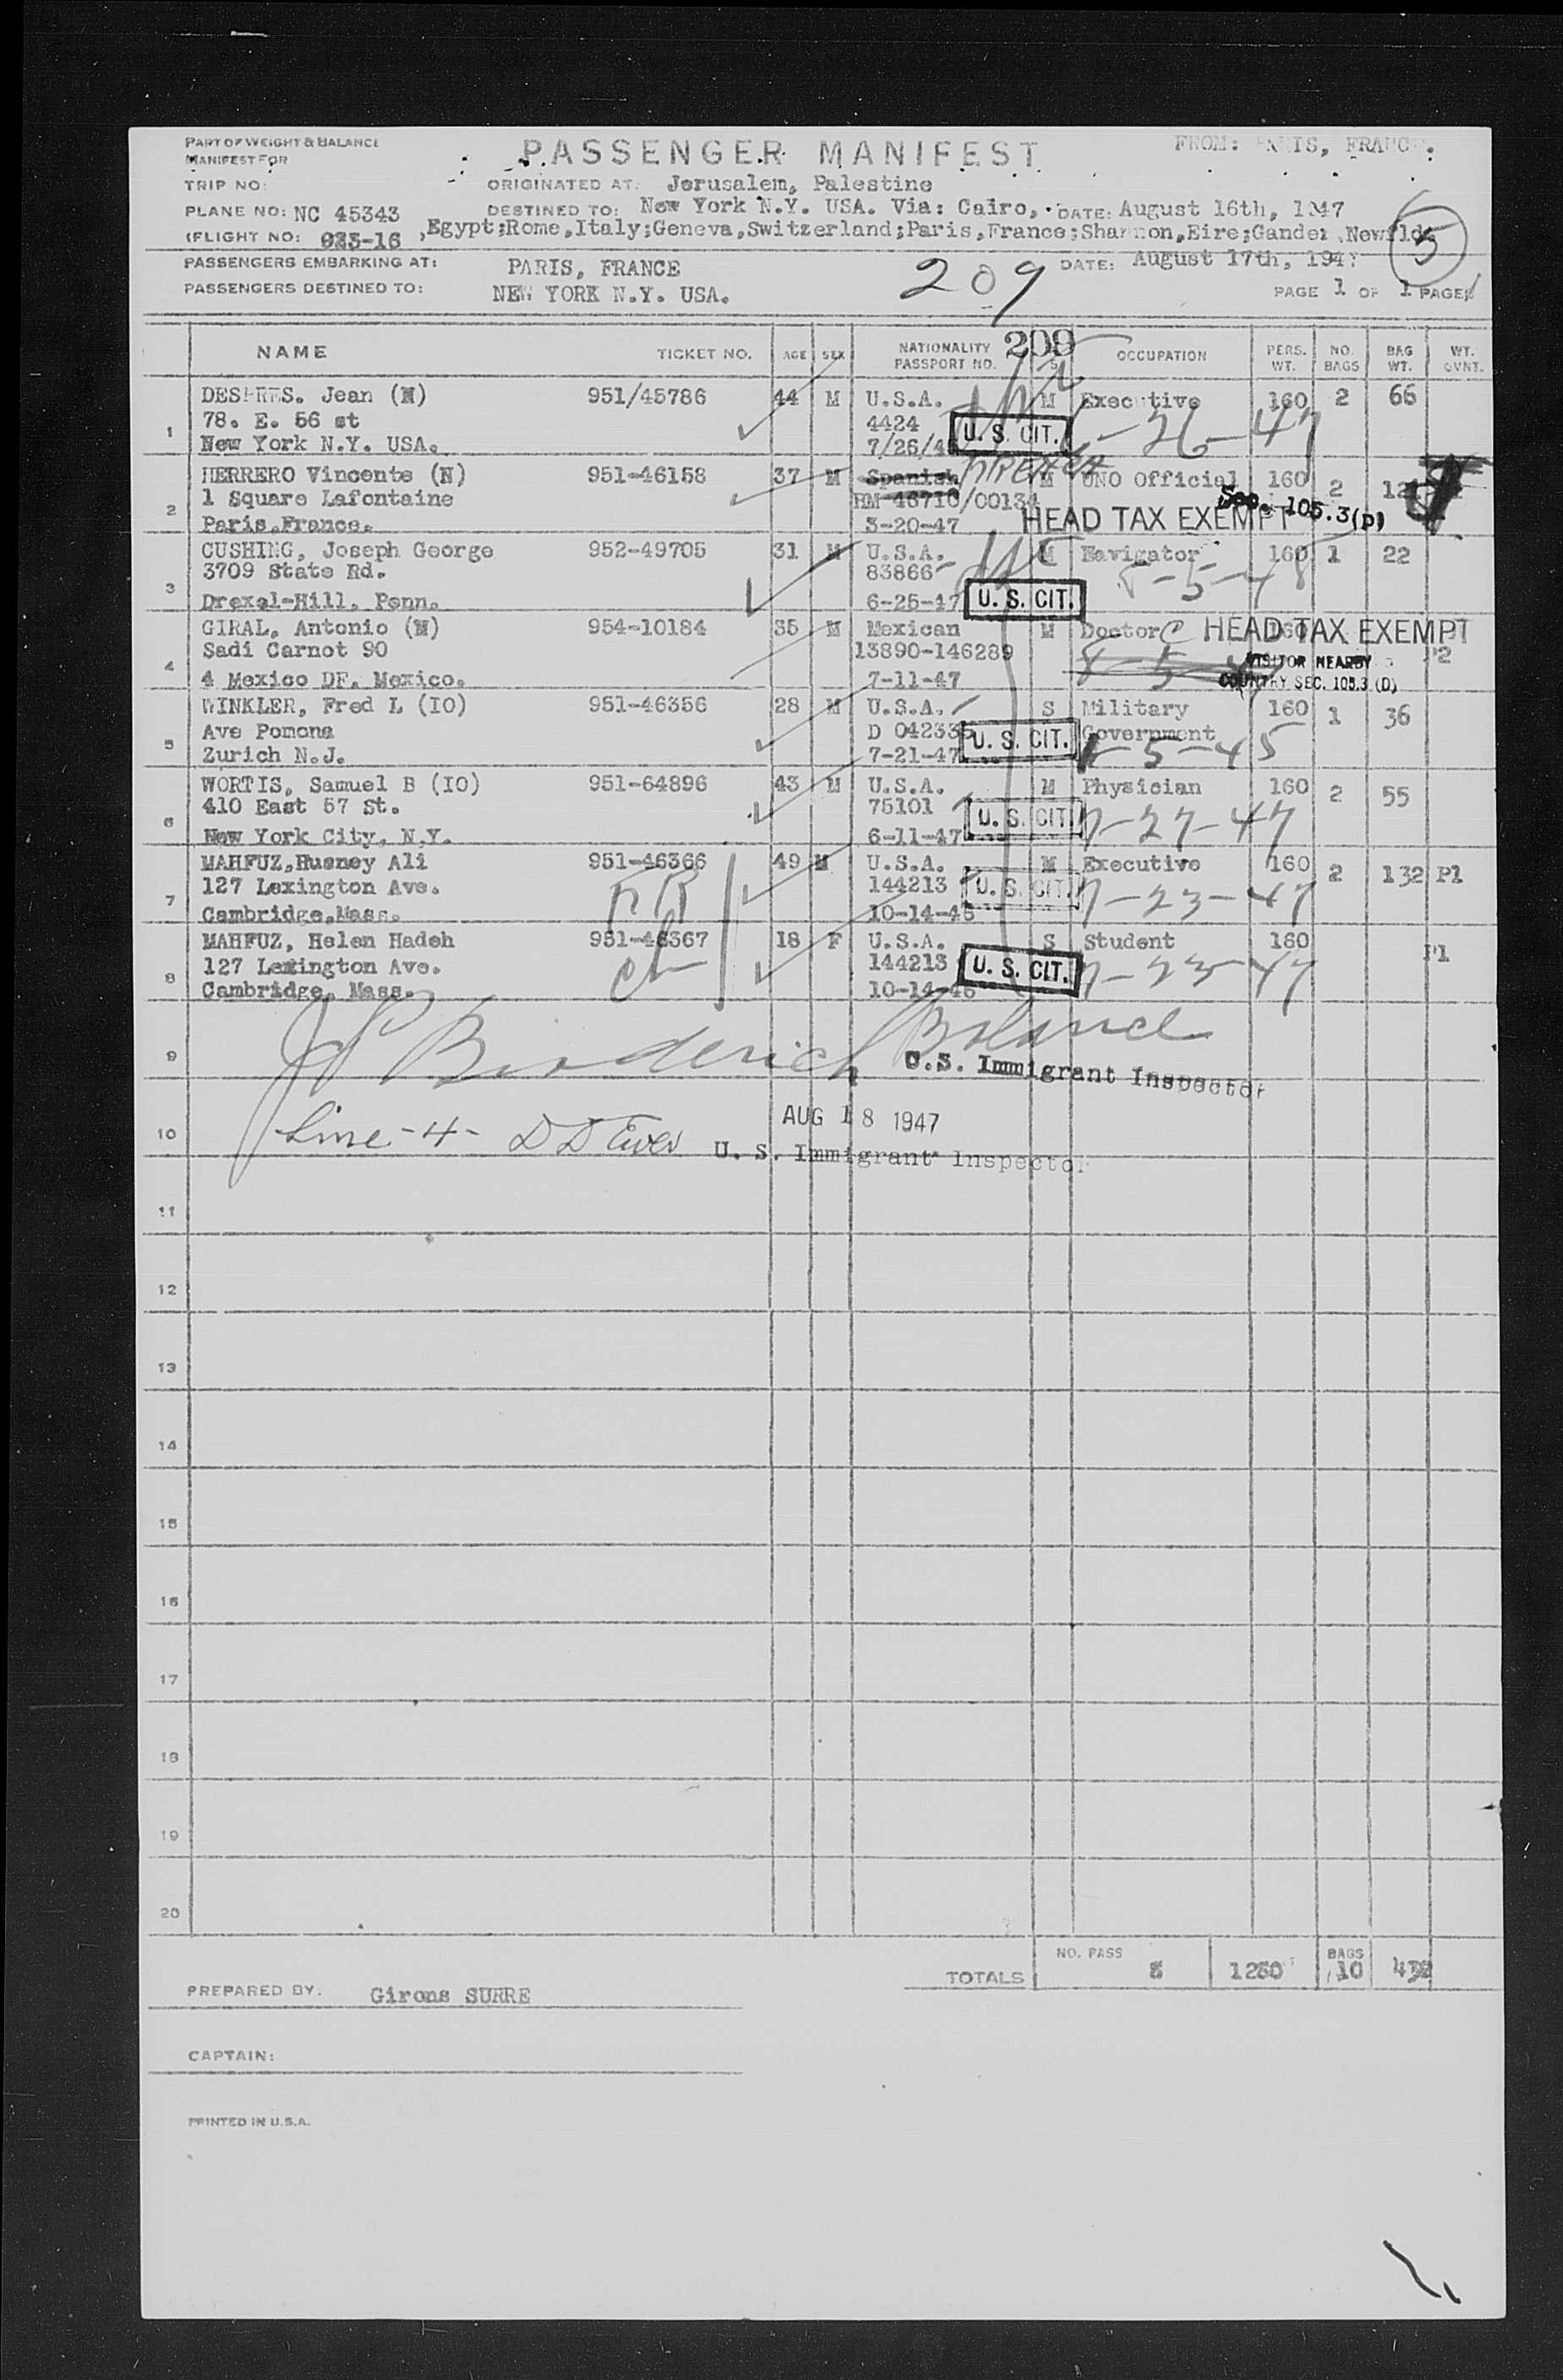 PART OF WEIGHT & BALANCE
MANIFEST FOR
PASSENGER MANIFEST
FROM: PARIS, FRANCE.
TRIP NO:
ORIGINATED AT: Jerusalem, Palestine
PLANE NO: NC 45343
DESTINED TO: New York N.Y. USA. Via: Cairo, DATE: August 16th, 1947
(FLIGHT NO: 923-16 ,Egypt;Rome,Italy;Geneva,Switzerland;Paris,France;Shannon,Eire;Gander,Newfld.
5
PASSENGERS EMBARKING AT: PARIS, FRANCE
209
DATE: August 17th, 1947
PASSENGERS DESTINED TO: NEW YORK N.Y. USA.
PAGE 1 OF 1 PAGES
209
NAME TICKET NO. AGE SEX NATIONALITY PASSPORT NO. OCCUPATION PERS. WT. NO. BAGS BAG WT. WT. OVNT.
1 Jean (N) 951/45786 44 M U.S.A. M Executive 160 2 66
78. E. 56 st 4424
New York N.Y. USA. 7/26/ U.S. CIT. -26-47
2 HERRERO Vincente (N) 951-46158 37 M Spanish M UNO Official 160 2
1 Square Lafontaine /00134 Sec. 105.3(D)
Paris,France. 3-20-47 HEAD TAX EXEMPT
3 CUSHING, Joseph George 952-49705 31 M U.S.A. M Navigator 160 1 22
3709 State Rd. 83866 8-5-48
Drexel-Hill, Penn. 6-25-47 U.S. CIT.
4 GIRAL, Antonio (N) 954-10184 35 M Mexican M Doctor HEAD TAX EXEMPT
Sadi Carnot 90 13890-146289 VISITOR NEARBY
4 Mexico DF. Mexico. 7-11-47 COUNTRY SEC. 105.3 (D)
5 WINKLER, Fred L (IO) 951-46356 28 M U.S.A. S Military 160 1 36
Ave Pomona D 042335 U.S. CIT. Government
Zurich N.J. 7-21-47 -5-45
6 WORTIS, Samuel B (IO) 951-64896 43 M U.S.A. M Physician 160 2 55
410 East 57 St. 75101 U.S. CIT. 7-27-47
New York City, N.Y. 6-11-47
7 MAHFUZ,Husney Ali 951-46366 49 M U.S.A. M Executive 160 2 132 P1
127 Lexington Ave. 144213 U.S. CIT. 7-23-47
Cambridge,Mass. 10-14-46
8 MAHFUZ, Helen Hadeh 951-46367 18 F U.S.A. S Student 160 P1
127 Lexington Ave. 144213 U.S. CIT. 7-23-47
Cambridge, Mass. 10-14-46
9 Broderick
U.S. Immigrant Inspector
AUG 18 1947
10 Line-4-
U. S. Immigrant Inspector
11
12
13
14
15
16
17
18
19
20
TOTALS NO. PASS 8 BAGS 10
PREPARED BY. Girons SURRE
CAPTAIN:
PRINTED IN U.S.A.